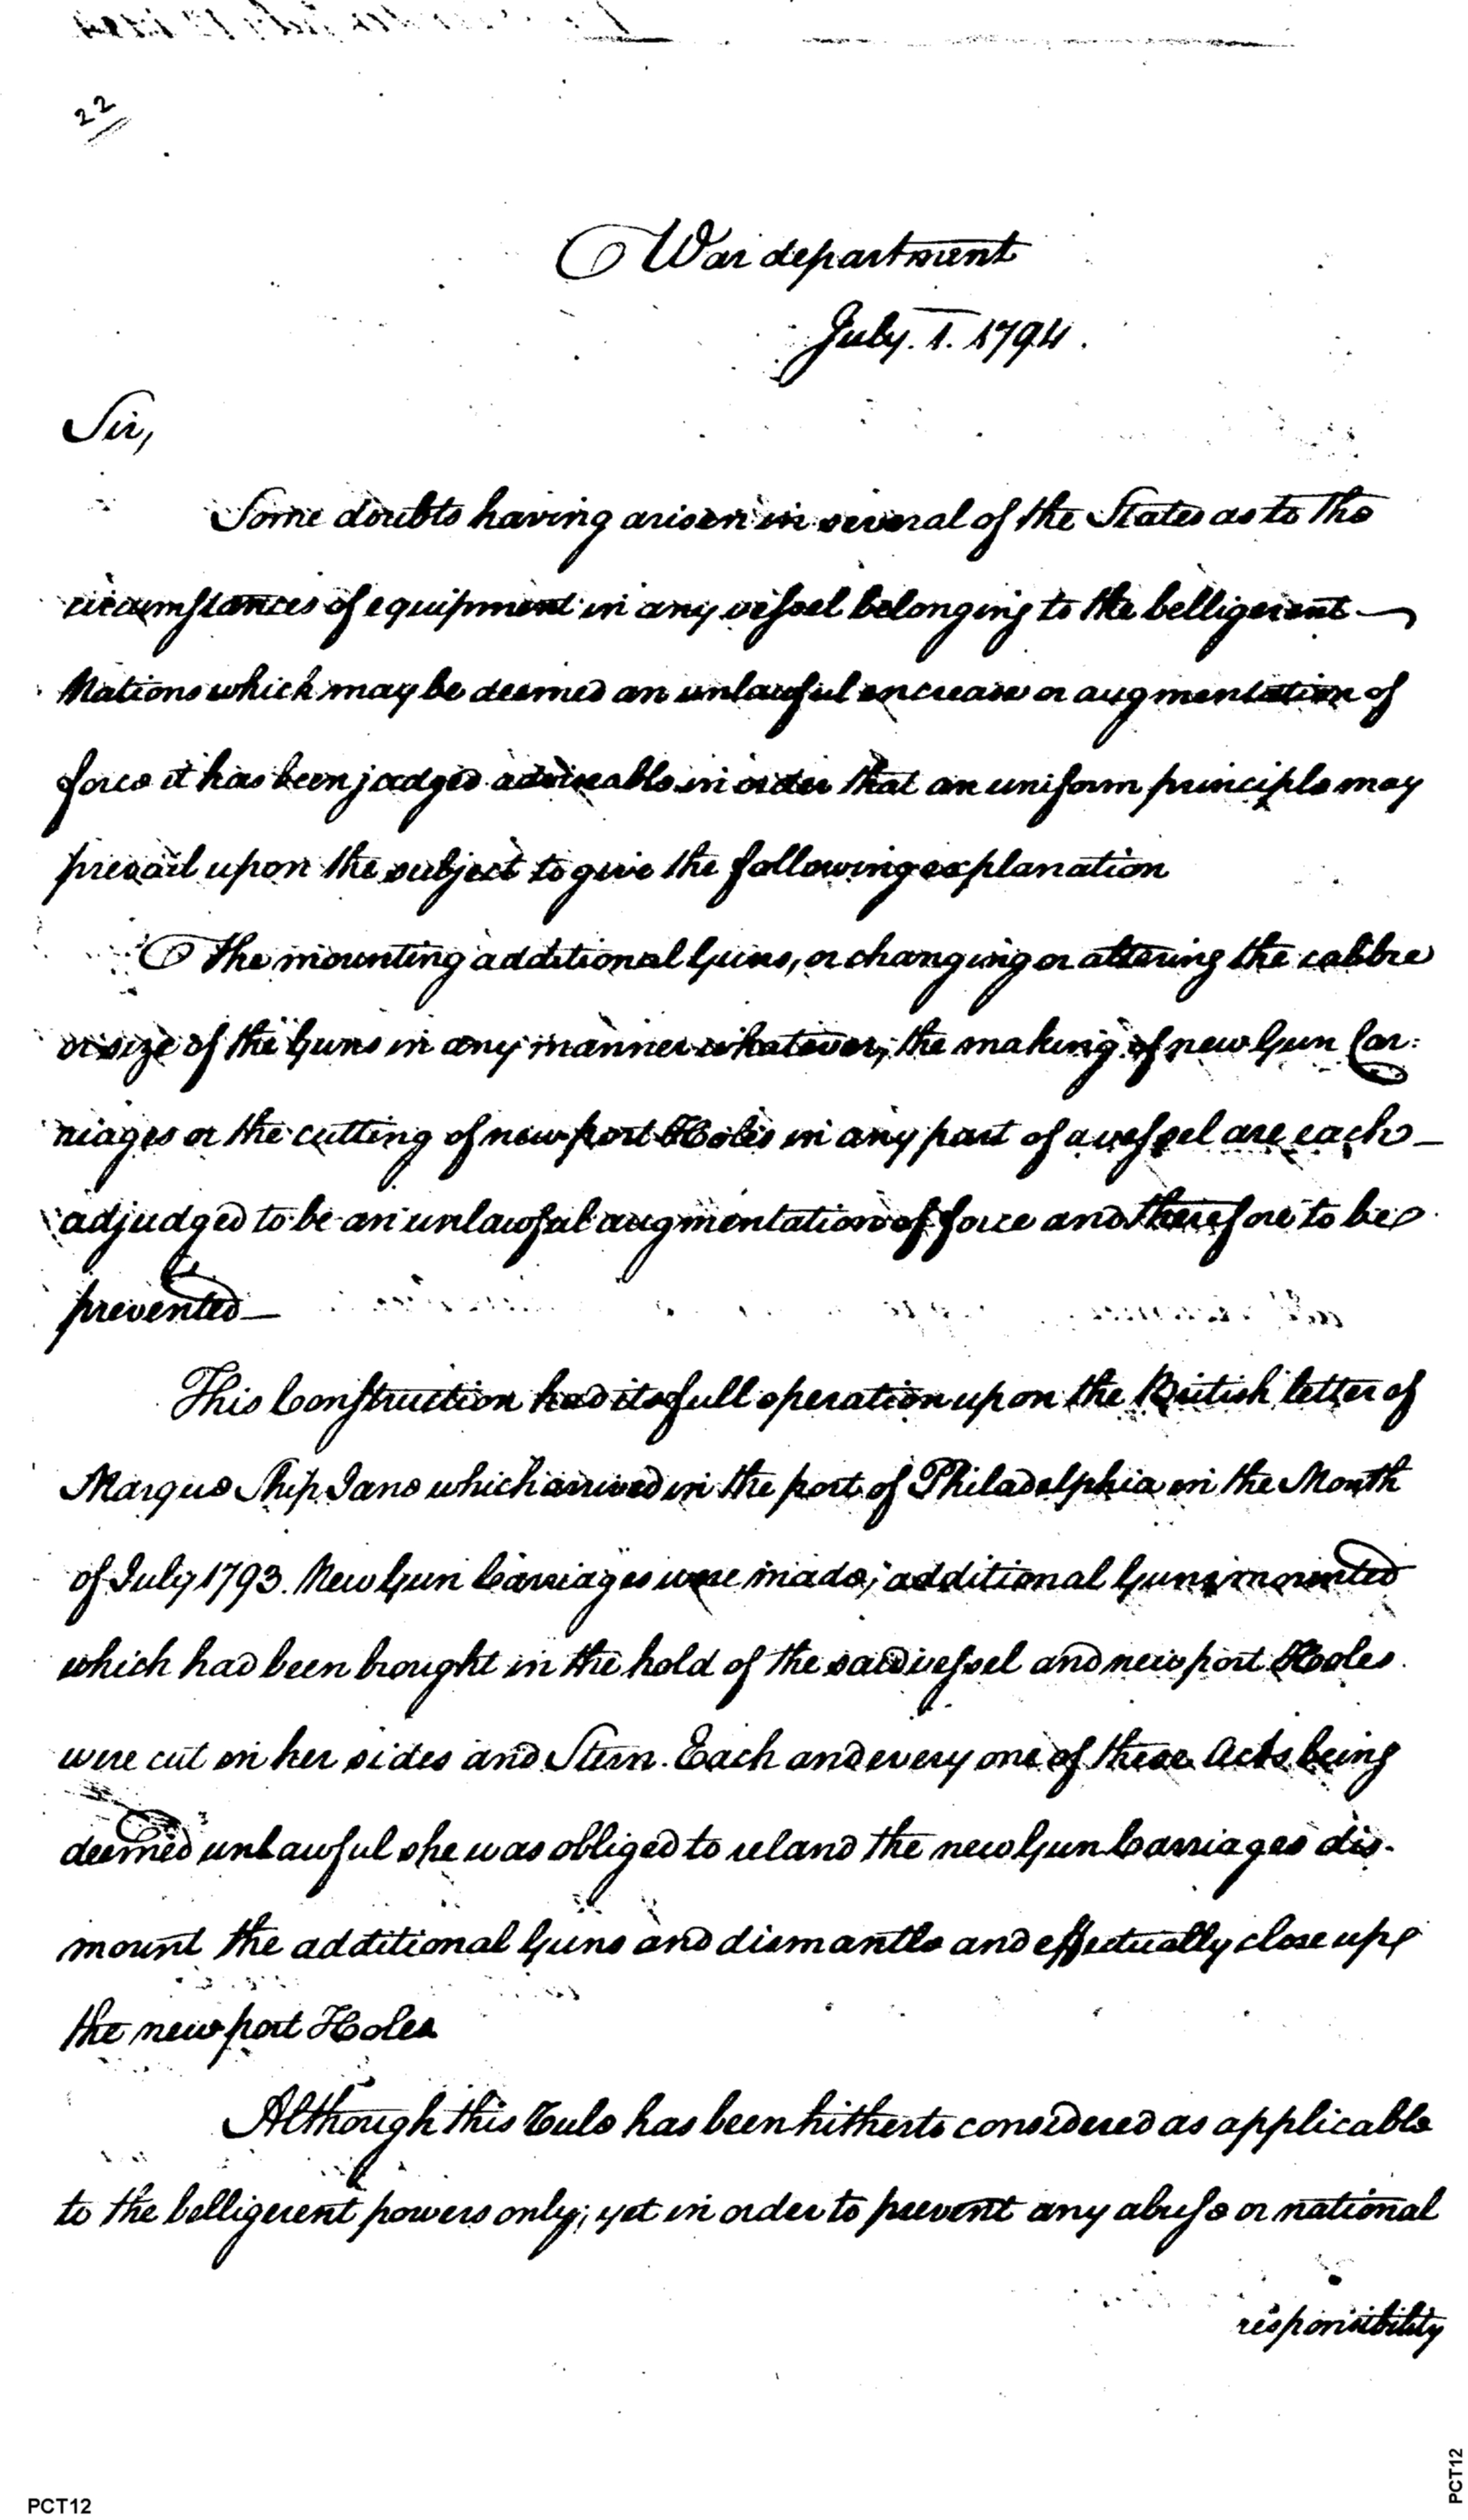 22
War department
July. 1. 1794.
Sir,
Some doubts having arisen in several of the States as to the
circumstances of equipment in any vessel belonging to the belligerent
Nations which may be deemed an unlawful encrease or augmentation of
force it has been judged adviseable in order that an uniform principle may
prevail upon the subject to give the following explanation
The mounting additional Guns, or changing or altering the calibre
or size of the Guns in any manner whatever, the making of new Gun Car:
riages or the cutting of new port Holes in any part of a vessel are each —
adjudged to be an unlawful augmentation of force and therefore to be
prevented —
This Construction had its full operation upon the British letter of
Marque Ship Jane which arrived in the port of Philadelphia in the Month
of July 1793. New Gun Carriages were made, additional Guns mounted
which had been brought in the hold of the said vessel and new port Holes
were cut in her sides and Stern. Each and every one of these Acts being
deemed unlawful she was obliged to reland the new Gun Carriages dis-
mount the additional Guns and dismantle and effectually close up
the new port Holes
Although this rule has been hitherto considered as applicable
to the belligerent powers only; yet in order to prevent any abuse or national
responsibility
PCT12
PCT12